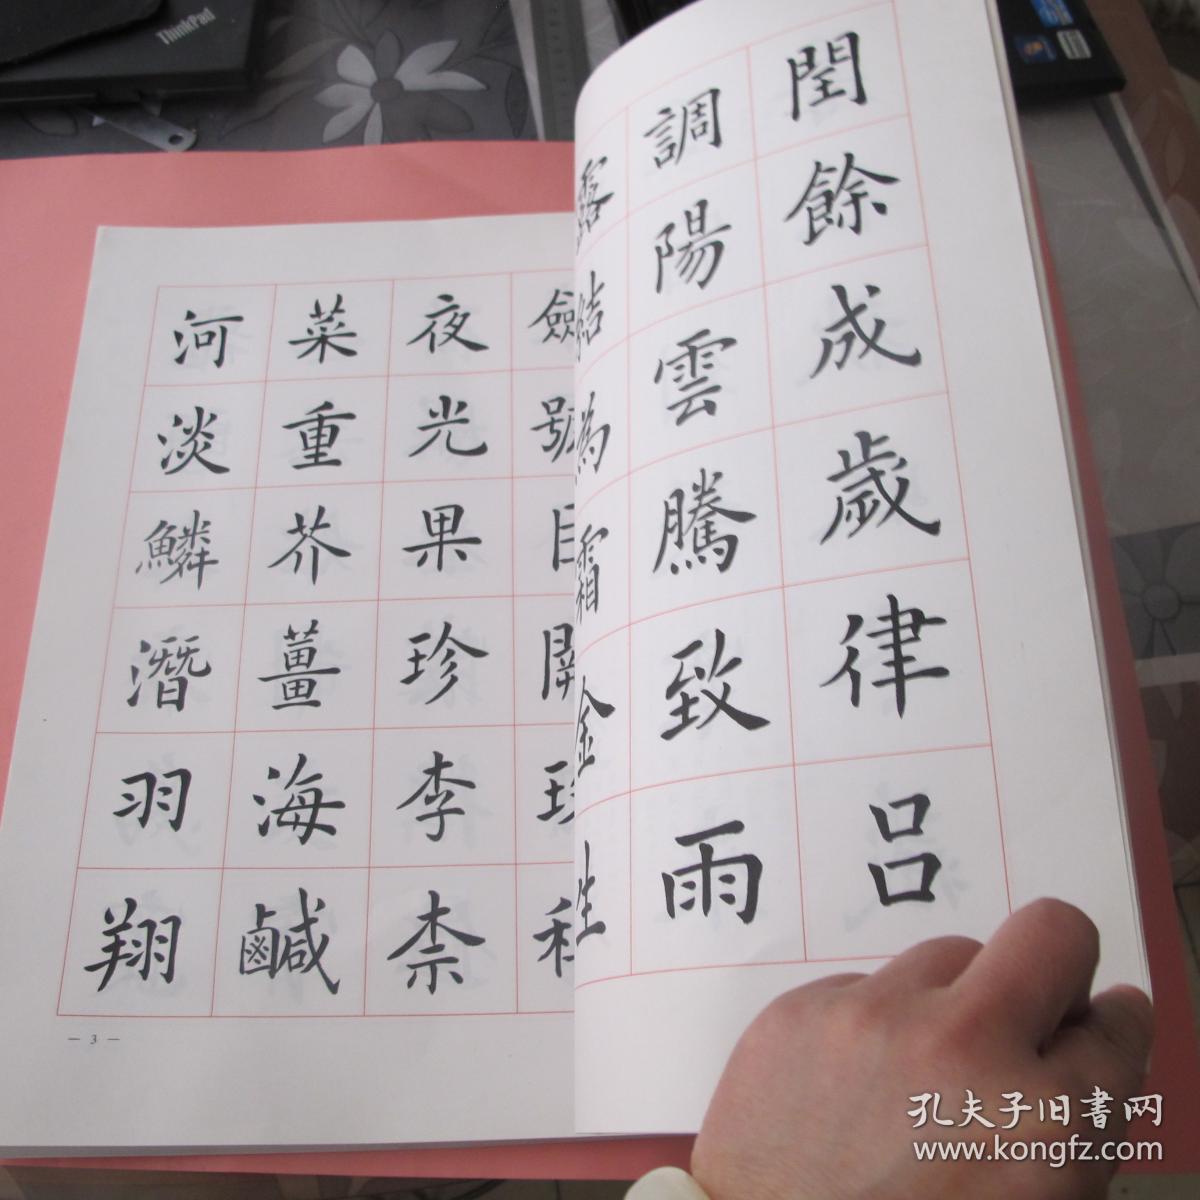 閏餘成歲律吕
調陽雲騰致雨
露結為霜金生
夜光果珍李柰
菜重芥薑海鹹
河淡鱗潛羽翔
— 3 —
ThinkPad
孔夫子旧書网
www.kongfz.com